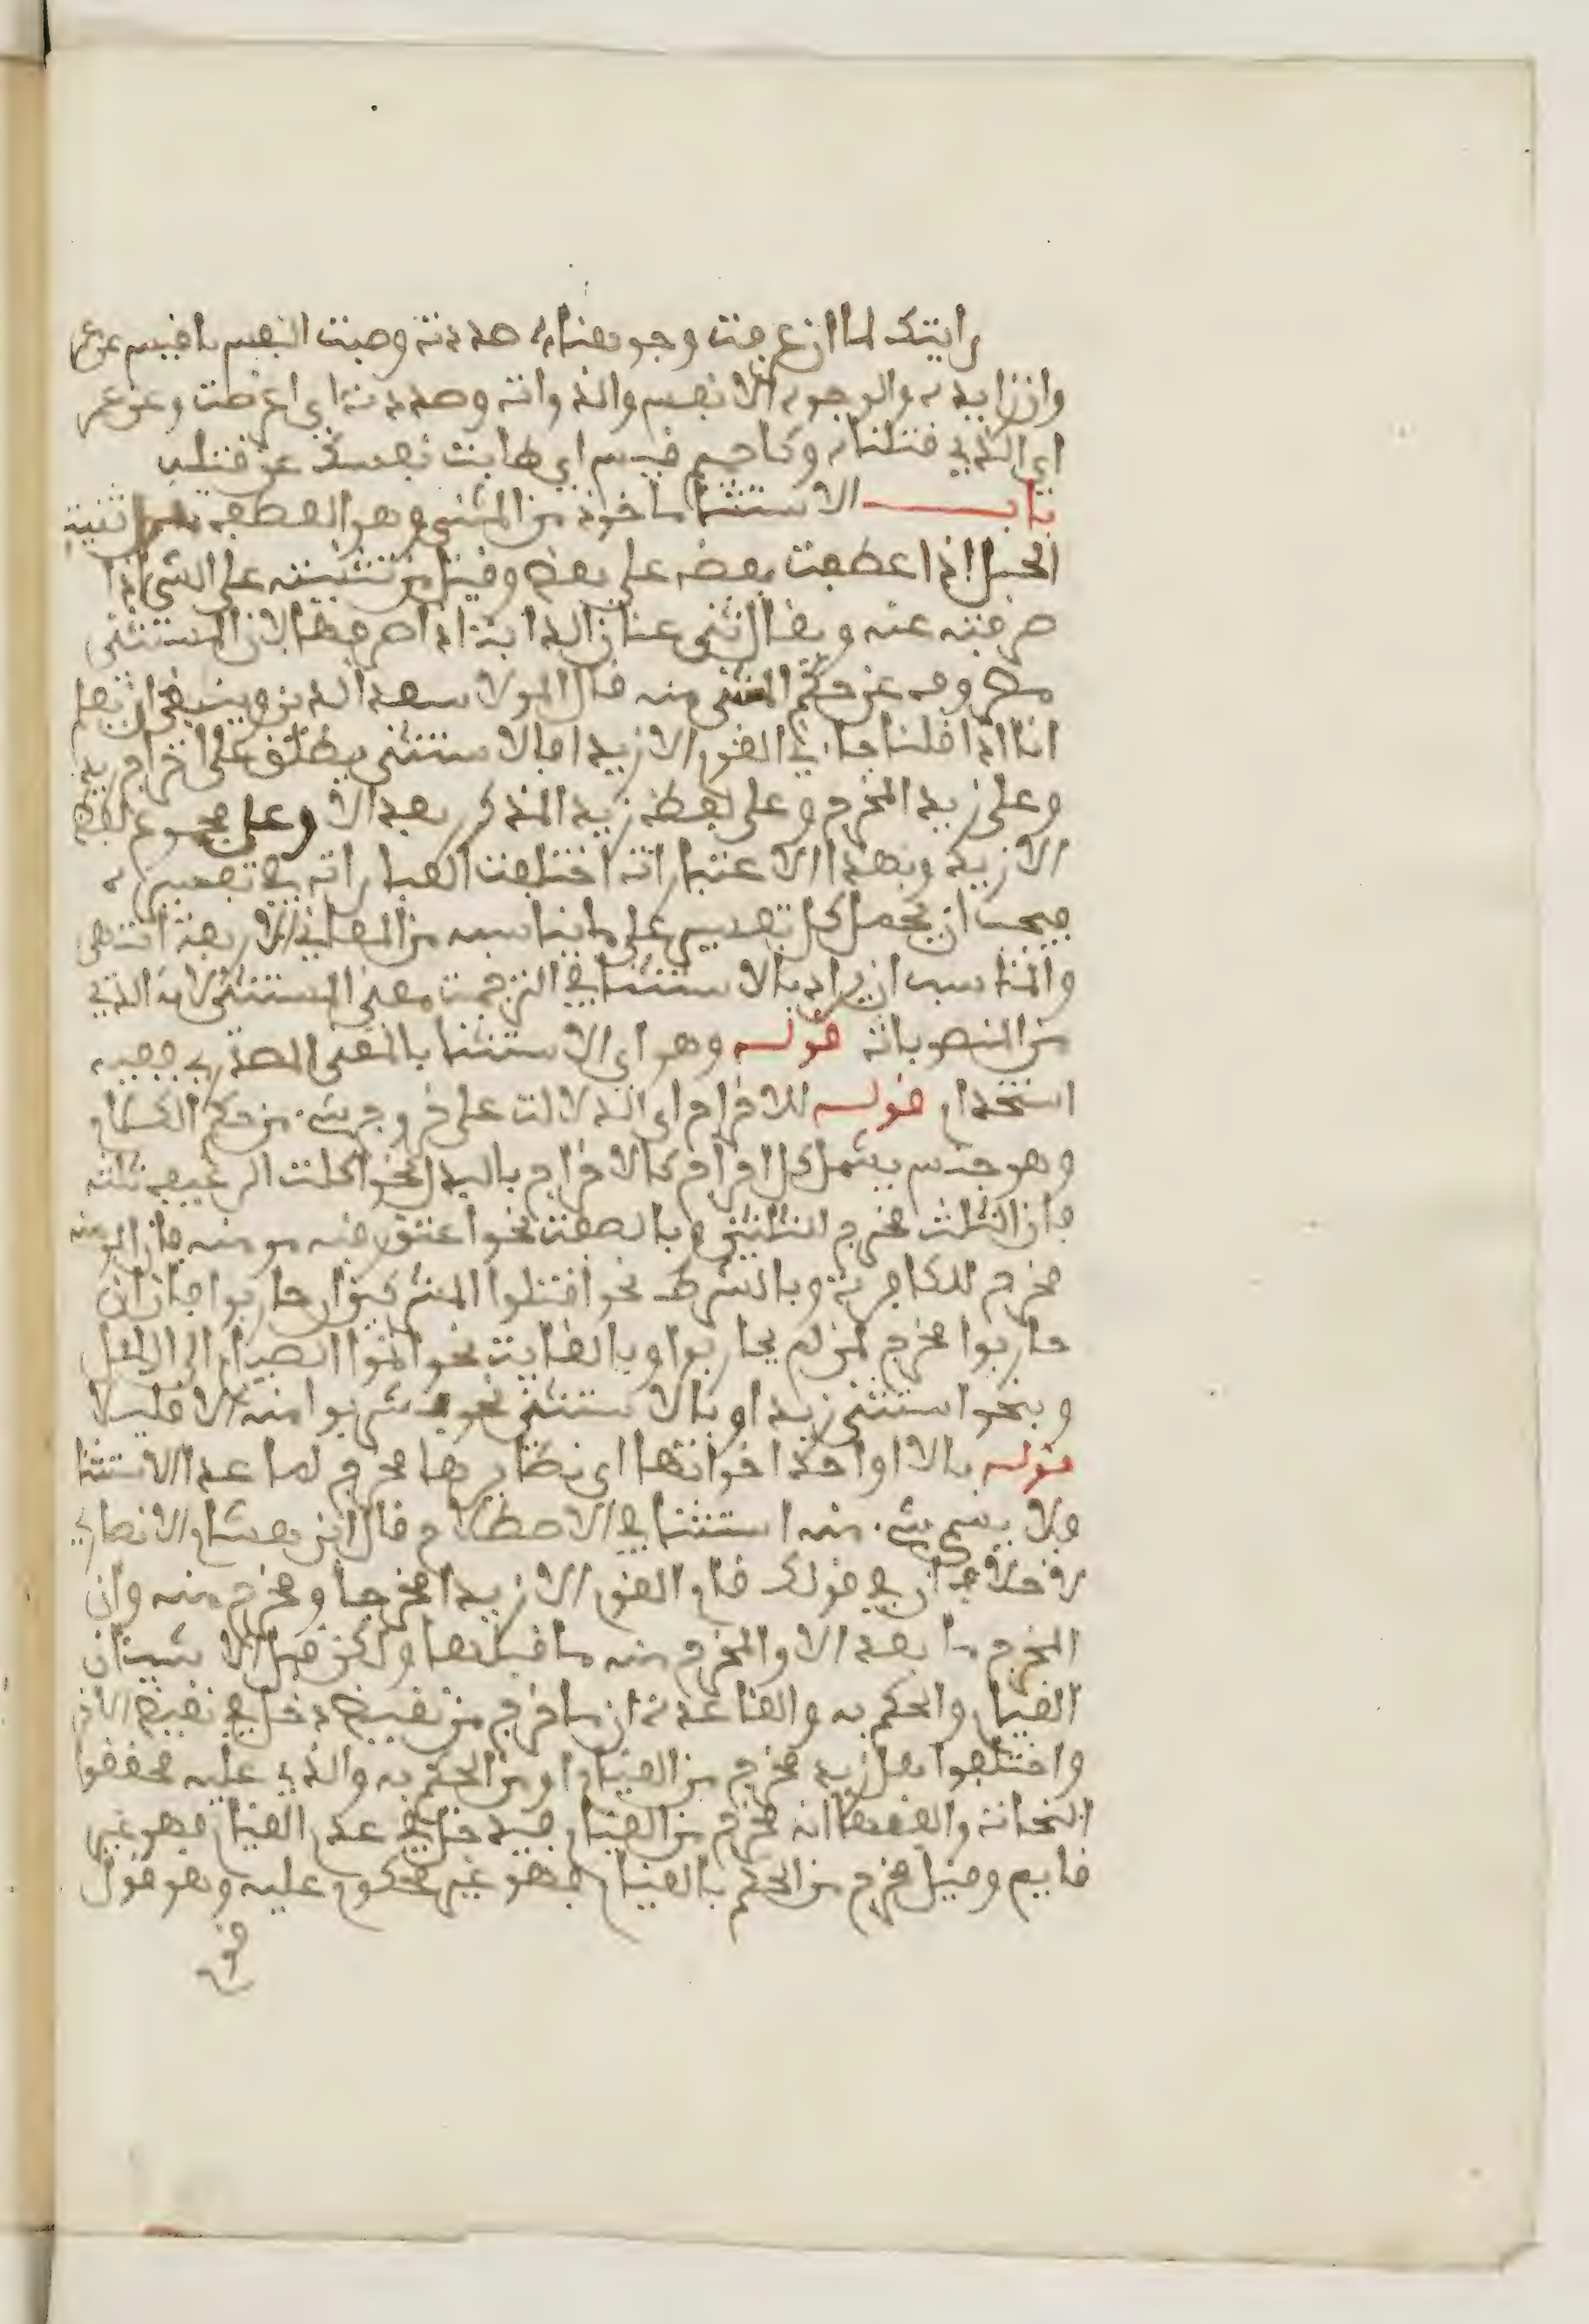 رايتك لما ان عرفت وجوهنا صددت وطبت النفس يا فيس عن عمر
وان زايدة والوجوه الانفس والذوات وصددت اي اعرضت وعن عمر
اي الذي قتلناه وكا حميم فيس اي طابت نفسك عن قتله
باب الاستثنا ماخوذ من الثني وهو العطف من ثنيت
الحبل اذا عطفت بعضه على بعض وقيل من ثنيته على الشي اذا
صرفته عنه ويقال ثنى عنان الدابة اذا صرفها لان المستثنى
مصروف عن حكم المستثنى منه قال المولا سعد الدين وينبغي ان يعلم
انا اذا قلنا جا ني القوم الا زيدا فالاستثنى يطلق على اخراج زيد
وعلى زيد المخرج وعلى لفظ زيد المذكور بعد الا وعلى مجموع لفظ
الا زيد وبهذا الاعتبارات اختلفت العبارات في تفسيره
فيجب ان يحمل كل تفسير على ما يناسبه من المعاني الاربعة انتهى
والمناسب ان يراد بالاستثنا في الترجمت معنى المستثنى لانه الذي
من المنصوبات قوله وهو اى الاستثنا بالمعنى المصدري ففيه
استخدام قوله للاخراج اى الدلالت على خروج شي من حكم الكلام
وهو جنس يشمل كل اخراج كالاخراج بالبدل نحو اكلت الرغيف ثلثه
فان الثلث مخرج للثلثين وبالصفت نحو اعتق رقبه مومنه فان المومنه
مخرج للكافرة وبالشرط نحو اقتلوا المشركين ان حاربوا فان ان
حاربوا مخرج لمن لم يحاربوا وبالغايت نحو اتموا الصيام الى اليل
وبنحو استثنى زيدا وبالاستثنى نحو شربوا منه الا قليلا
قوله بالا او احدا اخواتها اى نظايرها مخرج لما عدا الاستثنا
ولا يسمى شي منه استثنا في الاصطلاح قال ابن هشام الانصاري
لا خلاف ان في قولك قام القوم الا زيدا مخرجا ومخرج منه وان
المخرج ما بعد الا والمخرج منه ما قبلها ولكن قبل الا شيئان
القيام والحكم به والقاعدة ان ما خرج من نقيض دخل في نقيض الاخر
واختلفوا هل زيد مخرج من القيام او من الحكم به والذي عليه محققوا
النحات والفقها انه مخرج من القيام فيدخل في عدم القيام فهو غير
قايم وقيل مخرج من الحكم بالقيام فهو غير محكوم عليه وهو قول
قوم